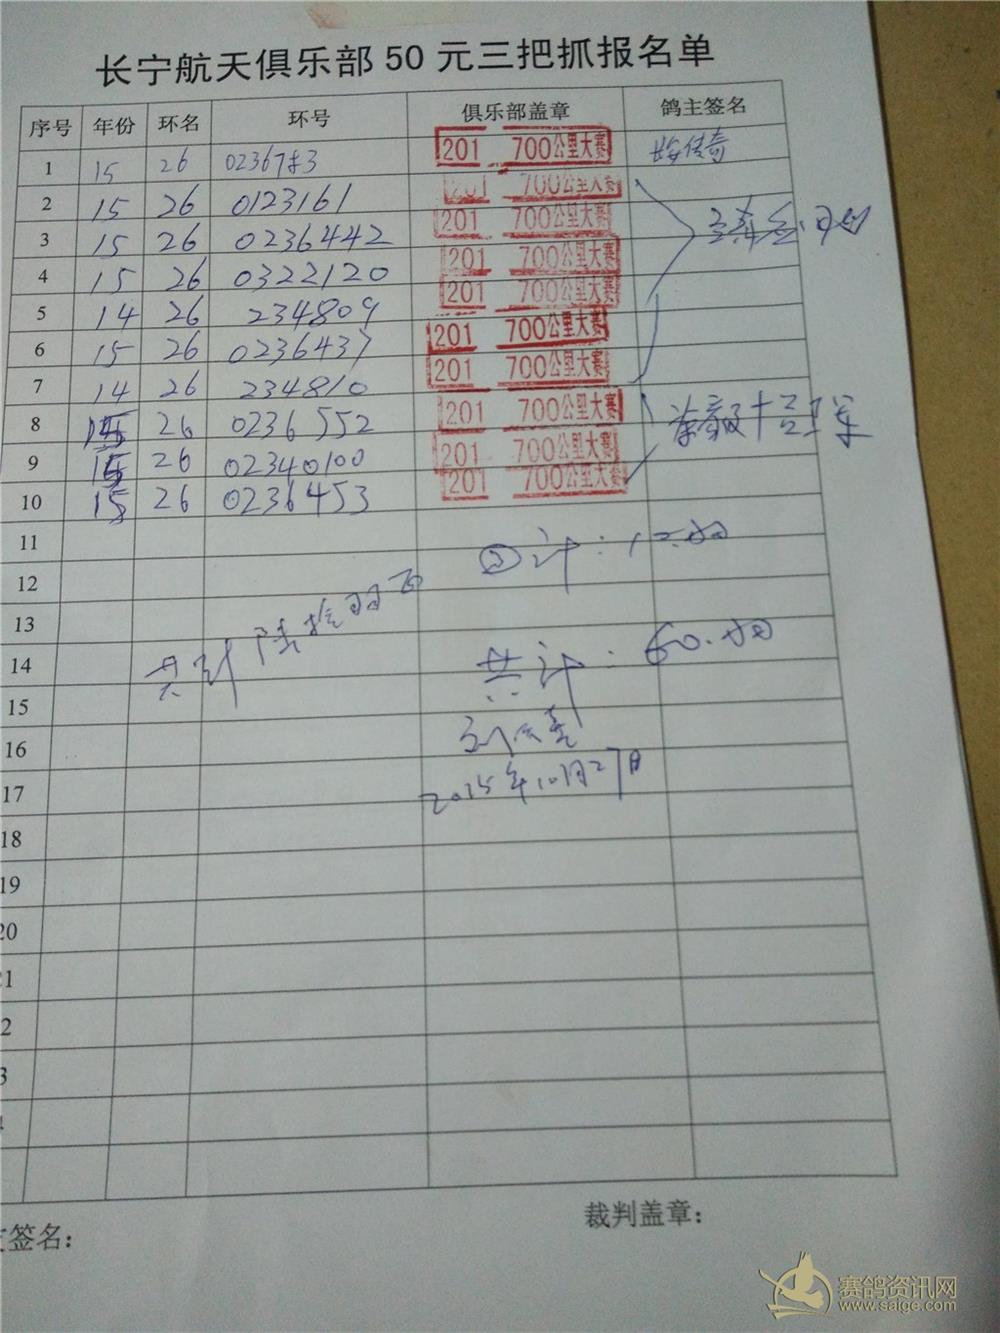 长宁航天俱乐部50元三把抓报名单
序号 年份 环名 环号 俱乐部盖章 鸽主签名
1 15 26 201 700公里大赛
2 15 26 0123161 201 700公里大赛
3 15 26 0236442 201 700公里大赛
4 15 26 0322120 201 700公里大赛
5 14 26 234809 201 700公里大赛
6 15 26 0236437 201 700公里大赛
7 14 26 234810 201 700公里大赛
8 26 0236552 201 700公里大赛
9 15 26 02340100 201 700公里大赛
10 15 26 0236453 201 700公里大赛
11
12
13
14 共计
共计:60.
15
16
2015年10月27日
17
18
19
20
21
2
3
签名:
裁判盖章:
赛鸽资讯网
www.saige.com